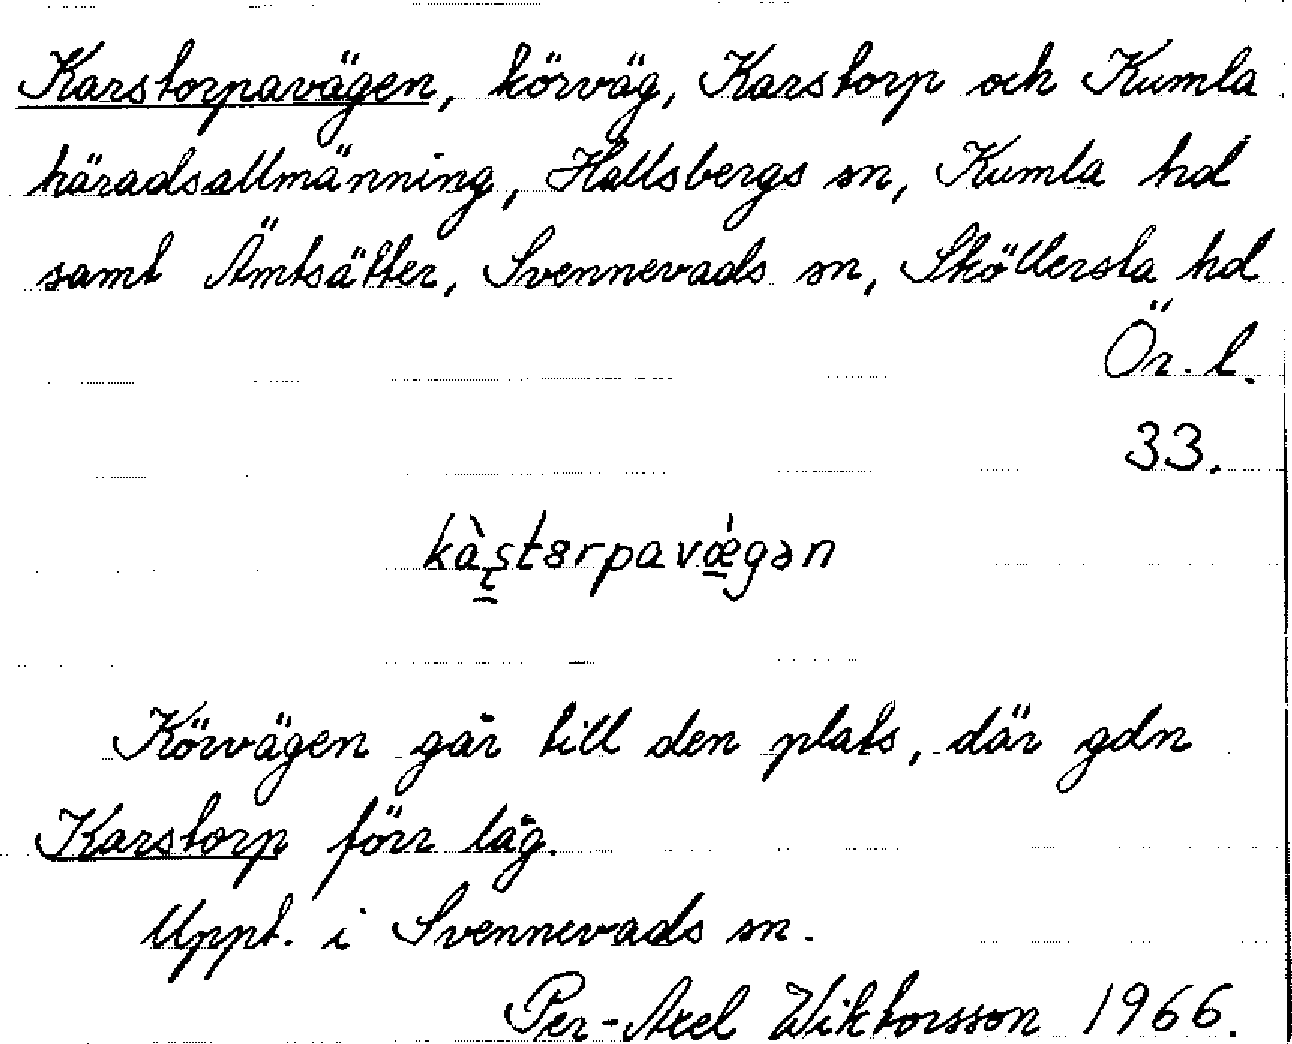 Karstorpavägen, körväg, Karstorp och Kumla
häradsallmänning, Hallsbergs sn, Kumla hd
samt Ämtsätter, Svennevads sn, Sköllersta hd
Ör. l.
33.
Körvägen går till den plats, där gdn
Karstorp förr låg.
Uppt. i Svennevads sn.
Per-Axel Wiktorsson 1966.